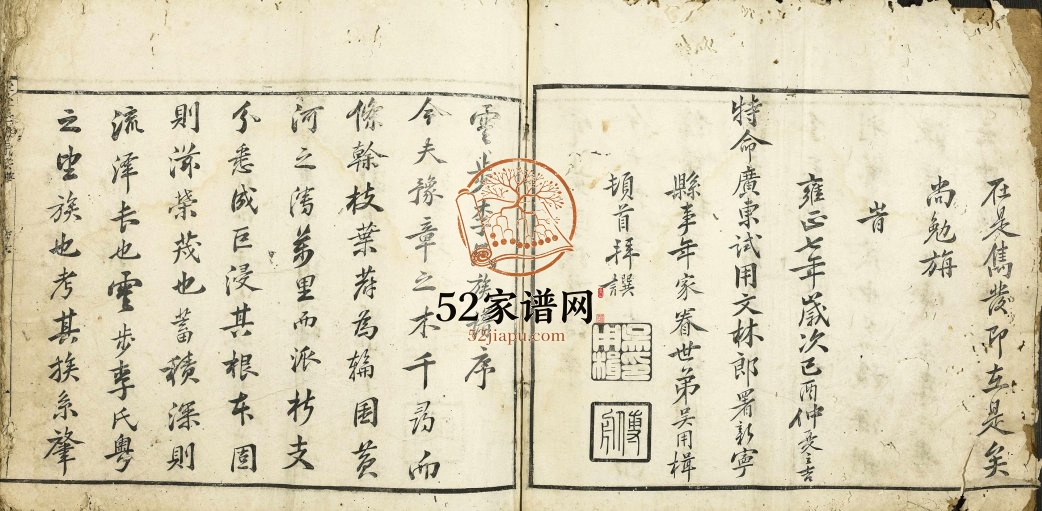 在是雋發即在是矣
尚勉旃
旹
雍正七年歲次己酉仲冬吉
特命廣東試用文林郎署新寧
縣事年家眷世弟吳用楫
頓首拜撰
吳用楫印
雲步李氏族譜序
今夫豫章之木千尋而
條榦枝葉蔚為輪囷黃
河之清萬里而派析支
分悉成巨浸其根本固
則滋榮茂也蓄積深則
流澤長也雲步李氏粵
之望族也考其族系肇
52家谱网
52jiapu.com